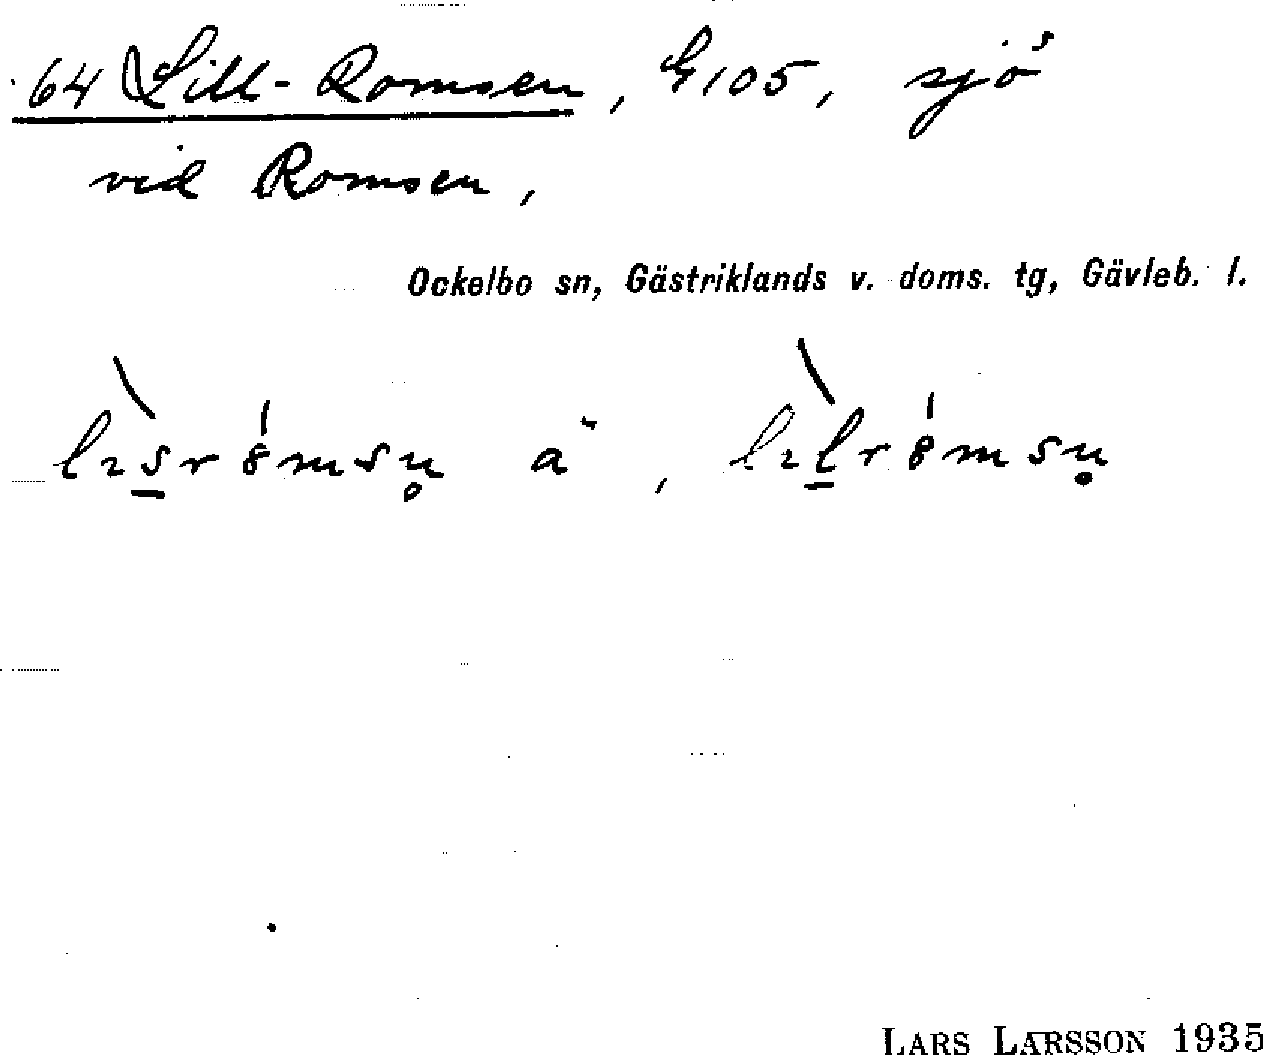 64 Lill-Romsen, G105, sjö
vid Romsen,
Ockelbo sn, Gästriklands v. doms. tg, Gävleb. l.
LARS LARSSON 1935